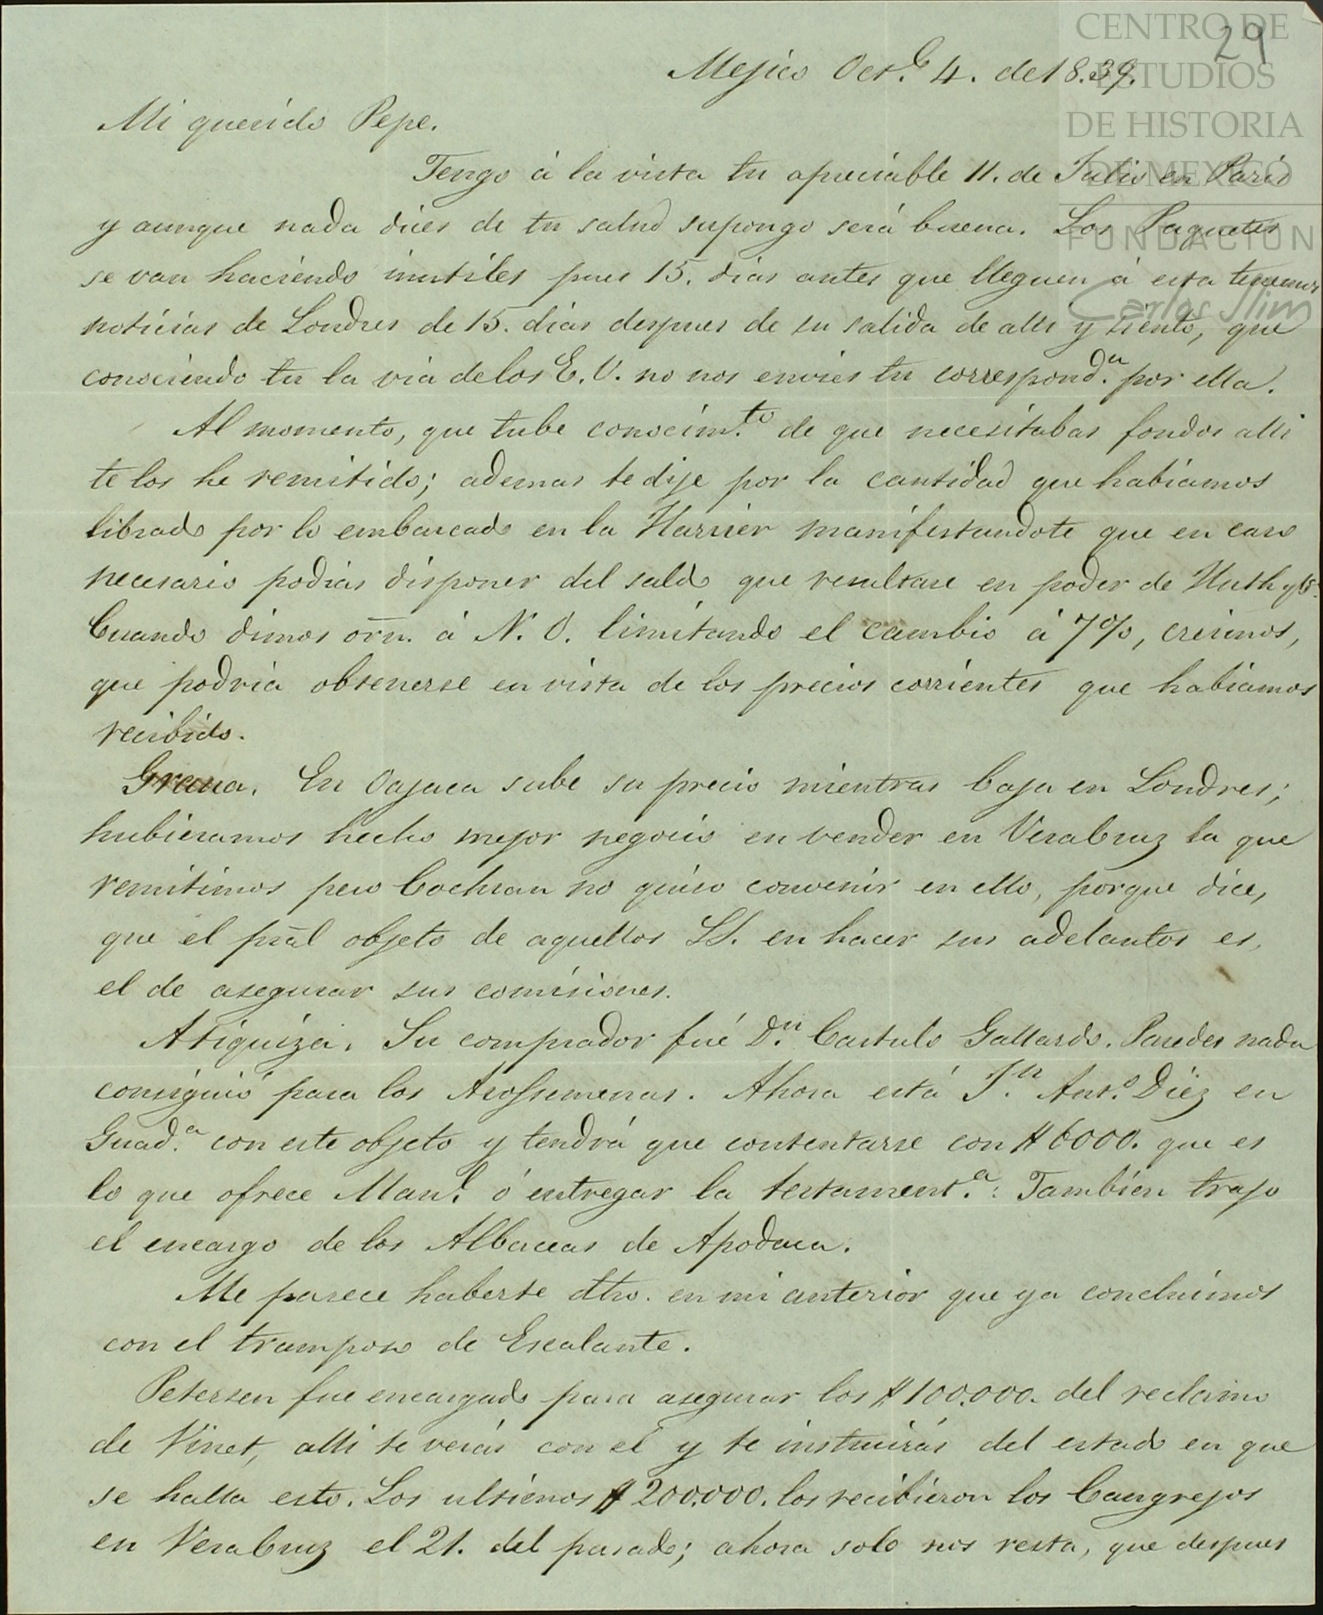 CENTRO DE
ESTUDIOS
DE HISTORIA
DE MEXICO
FUNDACIÓN
Carlos Slim
29
Mejico Oct.e 4. de 18.39.
Mi querido Pepe.
Tengo á la vista tu apreciable 11. de Julio en Paris
y aunque nada dices de tu salud supongo será buena. Los Paquetes
se van haciendo inutiles pues 15. dias antes que lleguen á esta tenemos
noticias de Londres de 15. dias despues de su salida de alli y siento, que
conociendo tu la via de los E. U. no nos envies tu correspond.a por ella.
Al momento, que tube conocim.to de que necesitabas fondos alli
te los he remitido; ademas te dije por la cantidad que habiamos
librado por lo embarcado en la Harrier manifestandote que en caso
necesario podias disponer del saldo que resultase en poder de Huth y C.
Cuando dimos orn. á N. O. limitando el cambio á 7%, creimos,
que podria obtenerse en vista de los precios corrientes que habiamos
recibido.
Grana. En Oajaca sube su precio mientras baja en Londres;
hubieramos hecho mejor negocio en vender en VeraCruz la que
remitimos pero Cochran no quiso convenir en ello, porque dice,
que el pral objeto de aquellos SS. en hacer sus adelantos es,
el de asegurar sus comisiones.
Atiquiza. Su comprador fué D.n Castulo Gallardo. Paredes nada
consiguió para los Arossemenas. Ahora está J.n Ant.o Diez en
Guad.a con este objeto y tendrá que contentarse con $ 6000. que es
lo que ofrece Man.l ó entregar la testament.a: Tambien trajo
el encargo de los Albaceas de Apodaca.
Me parece haberte dho. en mi anterior que ya concluimos
con el tramposo de Escalante.
Petersen fue encargado para asegurar los $ 100.000. del reclamo
de Vinet, alli te verás con el y te instruirás del estado en que
se halla esto. Los ultimos $ 200.000. los recibieron los Cangrejos
en VeraCruz el 21. del pasado; ahora solo nos resta, que despues